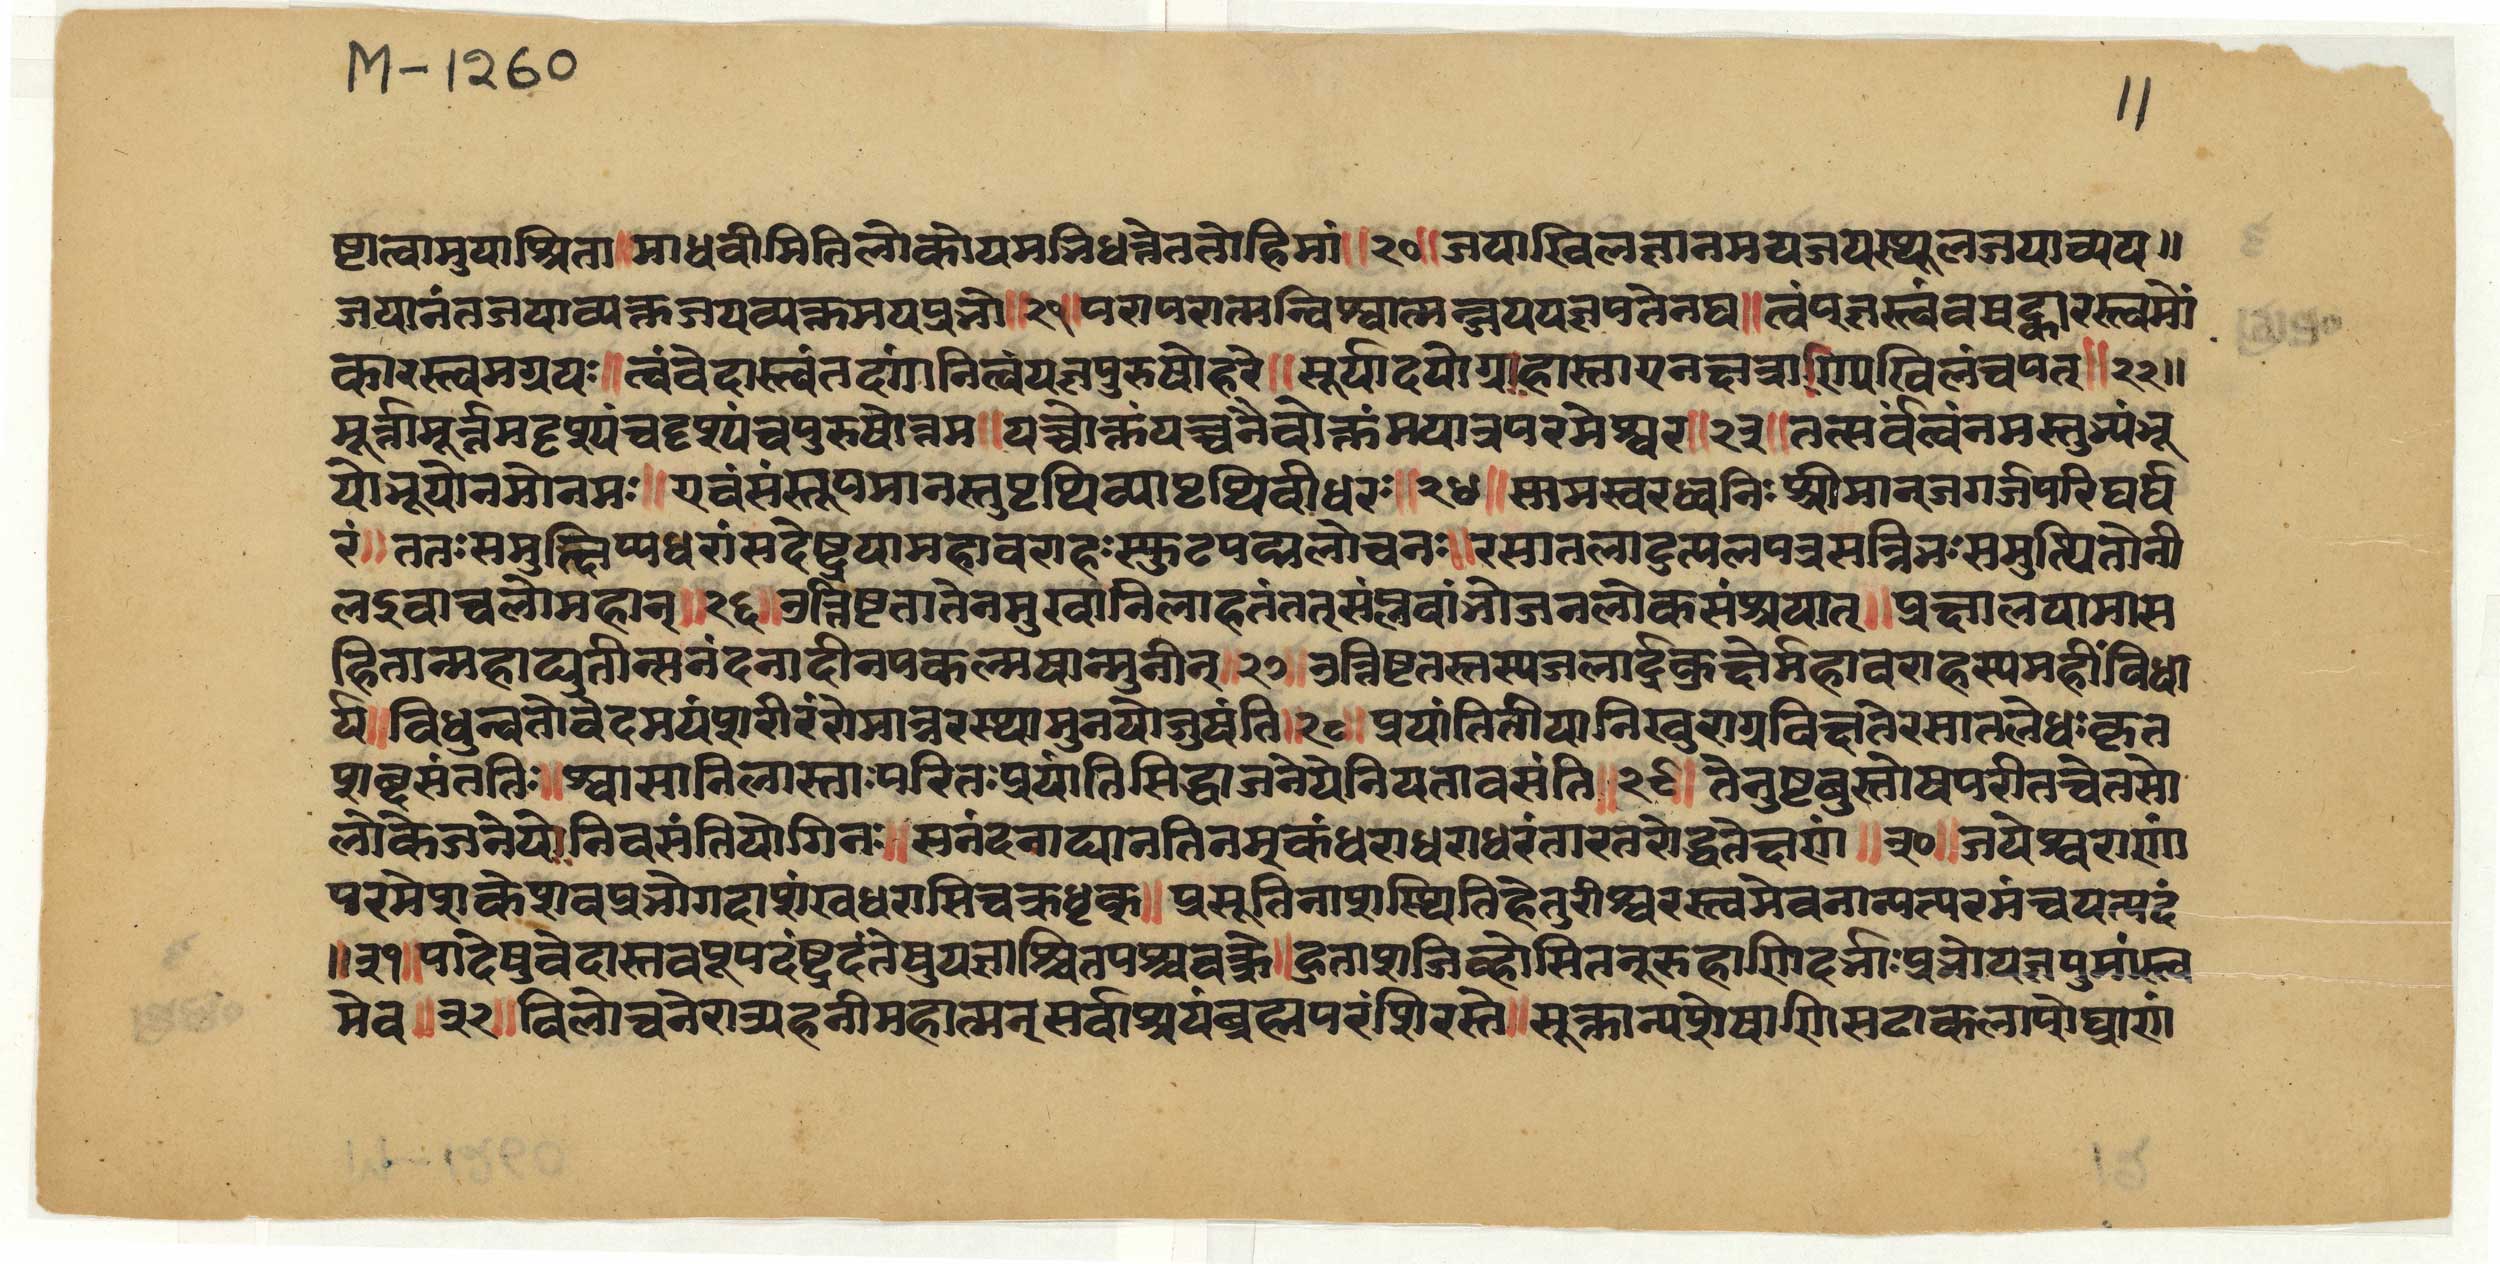 M-1260
11
ष्टात्वामुपाश्रिता॥माधवीमितिलोकोयमभिधत्तेततोहिमां॥२०॥जयाखिलज्ञानमयजयस्थूलजयाव्यय॥
जयानंतजयाव्यक्तजयव्यक्तमयप्रभो॥२१॥परापरात्मन्विश्वात्मन्जययज्ञपतेनघ॥त्वंयज्ञस्त्वंवषट्कारस्त्वमों
कारस्त्वमग्नयः॥त्वंवेदास्त्वंतदंगानित्वंयज्ञपुरुषोहरे॥सूर्यादयोग्राहास्ताराएनक्षत्राण्यखिलंचयत्॥२२॥
मूर्त्तामूर्त्तमदृश्यंचदृश्यंचपुरुषोत्तम॥यच्चोक्तंयच्चनैवोक्तंमयात्रपरमेश्वर॥२३॥तत्सर्वंत्वंनमस्तुभ्यंभू
योभूयोनमोनमः॥एवंसंस्तूयमानस्तुपृथिव्यापृथिवीधरः॥२४॥सामस्वरध्वनिःश्रीमान्जगर्जपरिघर्घ
रं॥ततःसमुत्क्षिप्यधरांसदंष्ट्रयामहावराहःस्फुटपद्मलोचनः॥रसातलादुत्पलपत्रसन्निभःसमुत्थितोनी
लइवाचलोमहान्॥२६॥उत्तिष्टतातेनमुखानिलाहतंतत्संप्लवांभोजनलोकसंश्रयात्॥प्रक्षालयामास
हितान्महाद्युतीन्सनंदनादीनपकल्मषान्मुनीन्॥२७॥उत्तिष्टतस्तस्यजलार्द्रकुक्षेर्महावराहस्यमहींविधा
र्य॥विधुन्वतोवेदमयंशरीरंरोमान्तरस्थामुनयोजुषंति॥२८॥प्रयांतितोयानिखुराग्रविक्षतेरसातलेधःकृत
शब्दसंततिः॥श्वासानिलास्ताःपरितःप्रयांतिसिद्धाजनेयेनियतावसंति॥२९॥तेतुष्टुवुस्तोषपरीतचेतसो
लोकेजनेयोनिवसंतियोगिनः॥सनंदनाद्यानतिनम्रकंधराधराधरंतारतरोद्धतेक्षणं॥३०॥जयेश्वराणां
परमेशकेशवप्रभोगदाशंखधरासिचक्रधृक्॥प्रसूतिनाशस्थितिहेतुरीश्वरस्त्वमेवनान्यत्परमंचयत्पदं
॥३१॥पादेषुवेदास्तवयूपदंष्ट्रदंतेषुयज्ञाश्चितयश्चवक्त्रे॥हुताशजिव्होसितनूरुहाणिदर्भाःप्रभोयज्ञपुमांस्त्व
मेव॥३२॥विलोचनेरात्र्यहनीमहात्मन्सर्वाश्रयंब्रह्मपरंशिरस्ते॥सूक्तान्यशेषाणिसटाकलापोघ्राणं